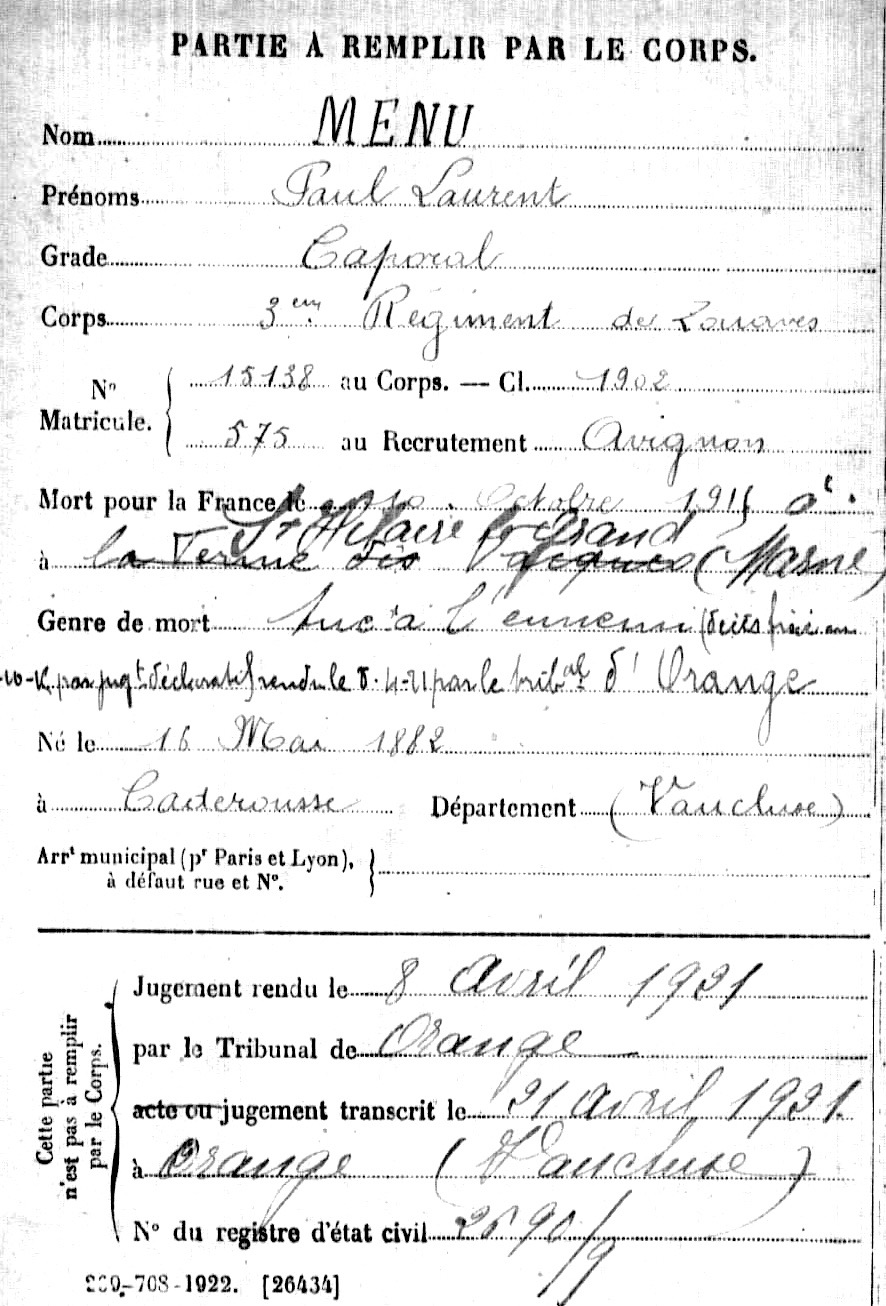 PARTIE A REMPLIR PAR LE CORPS.
Nom MENU
Prénoms Paul Laurent
Grade Caporal
Corps 3em Régiment de Zouaves
No Matricule. 15138 au Corps. — Cl. 1902
575 au Recrutement Avignon
Mort pour la France le 10 Octobre 1915 à
St Hilaire le Grand
à la Ferme des (Marne)
Genre de mort Tué à l'ennemi (décès fixé au
10- par jugt déclaratif rendu le 8-4-21 par le tribal d'Orange
Né le 16 Mai 1882
à Caderousse Département (Vaucluse)
Arrt municipal (pr Paris et Lyon),
à défaut rue et No.
Cette partie
n'est pas à remplir
par le Corps.
Jugement rendu le 8 Avril 1921
par le Tribunal de Orange
acte ou jugement transcrit le 21 Avril 1921
à Orange (Vaucluse)
No du registre d'état civil
708-1922. [26434]